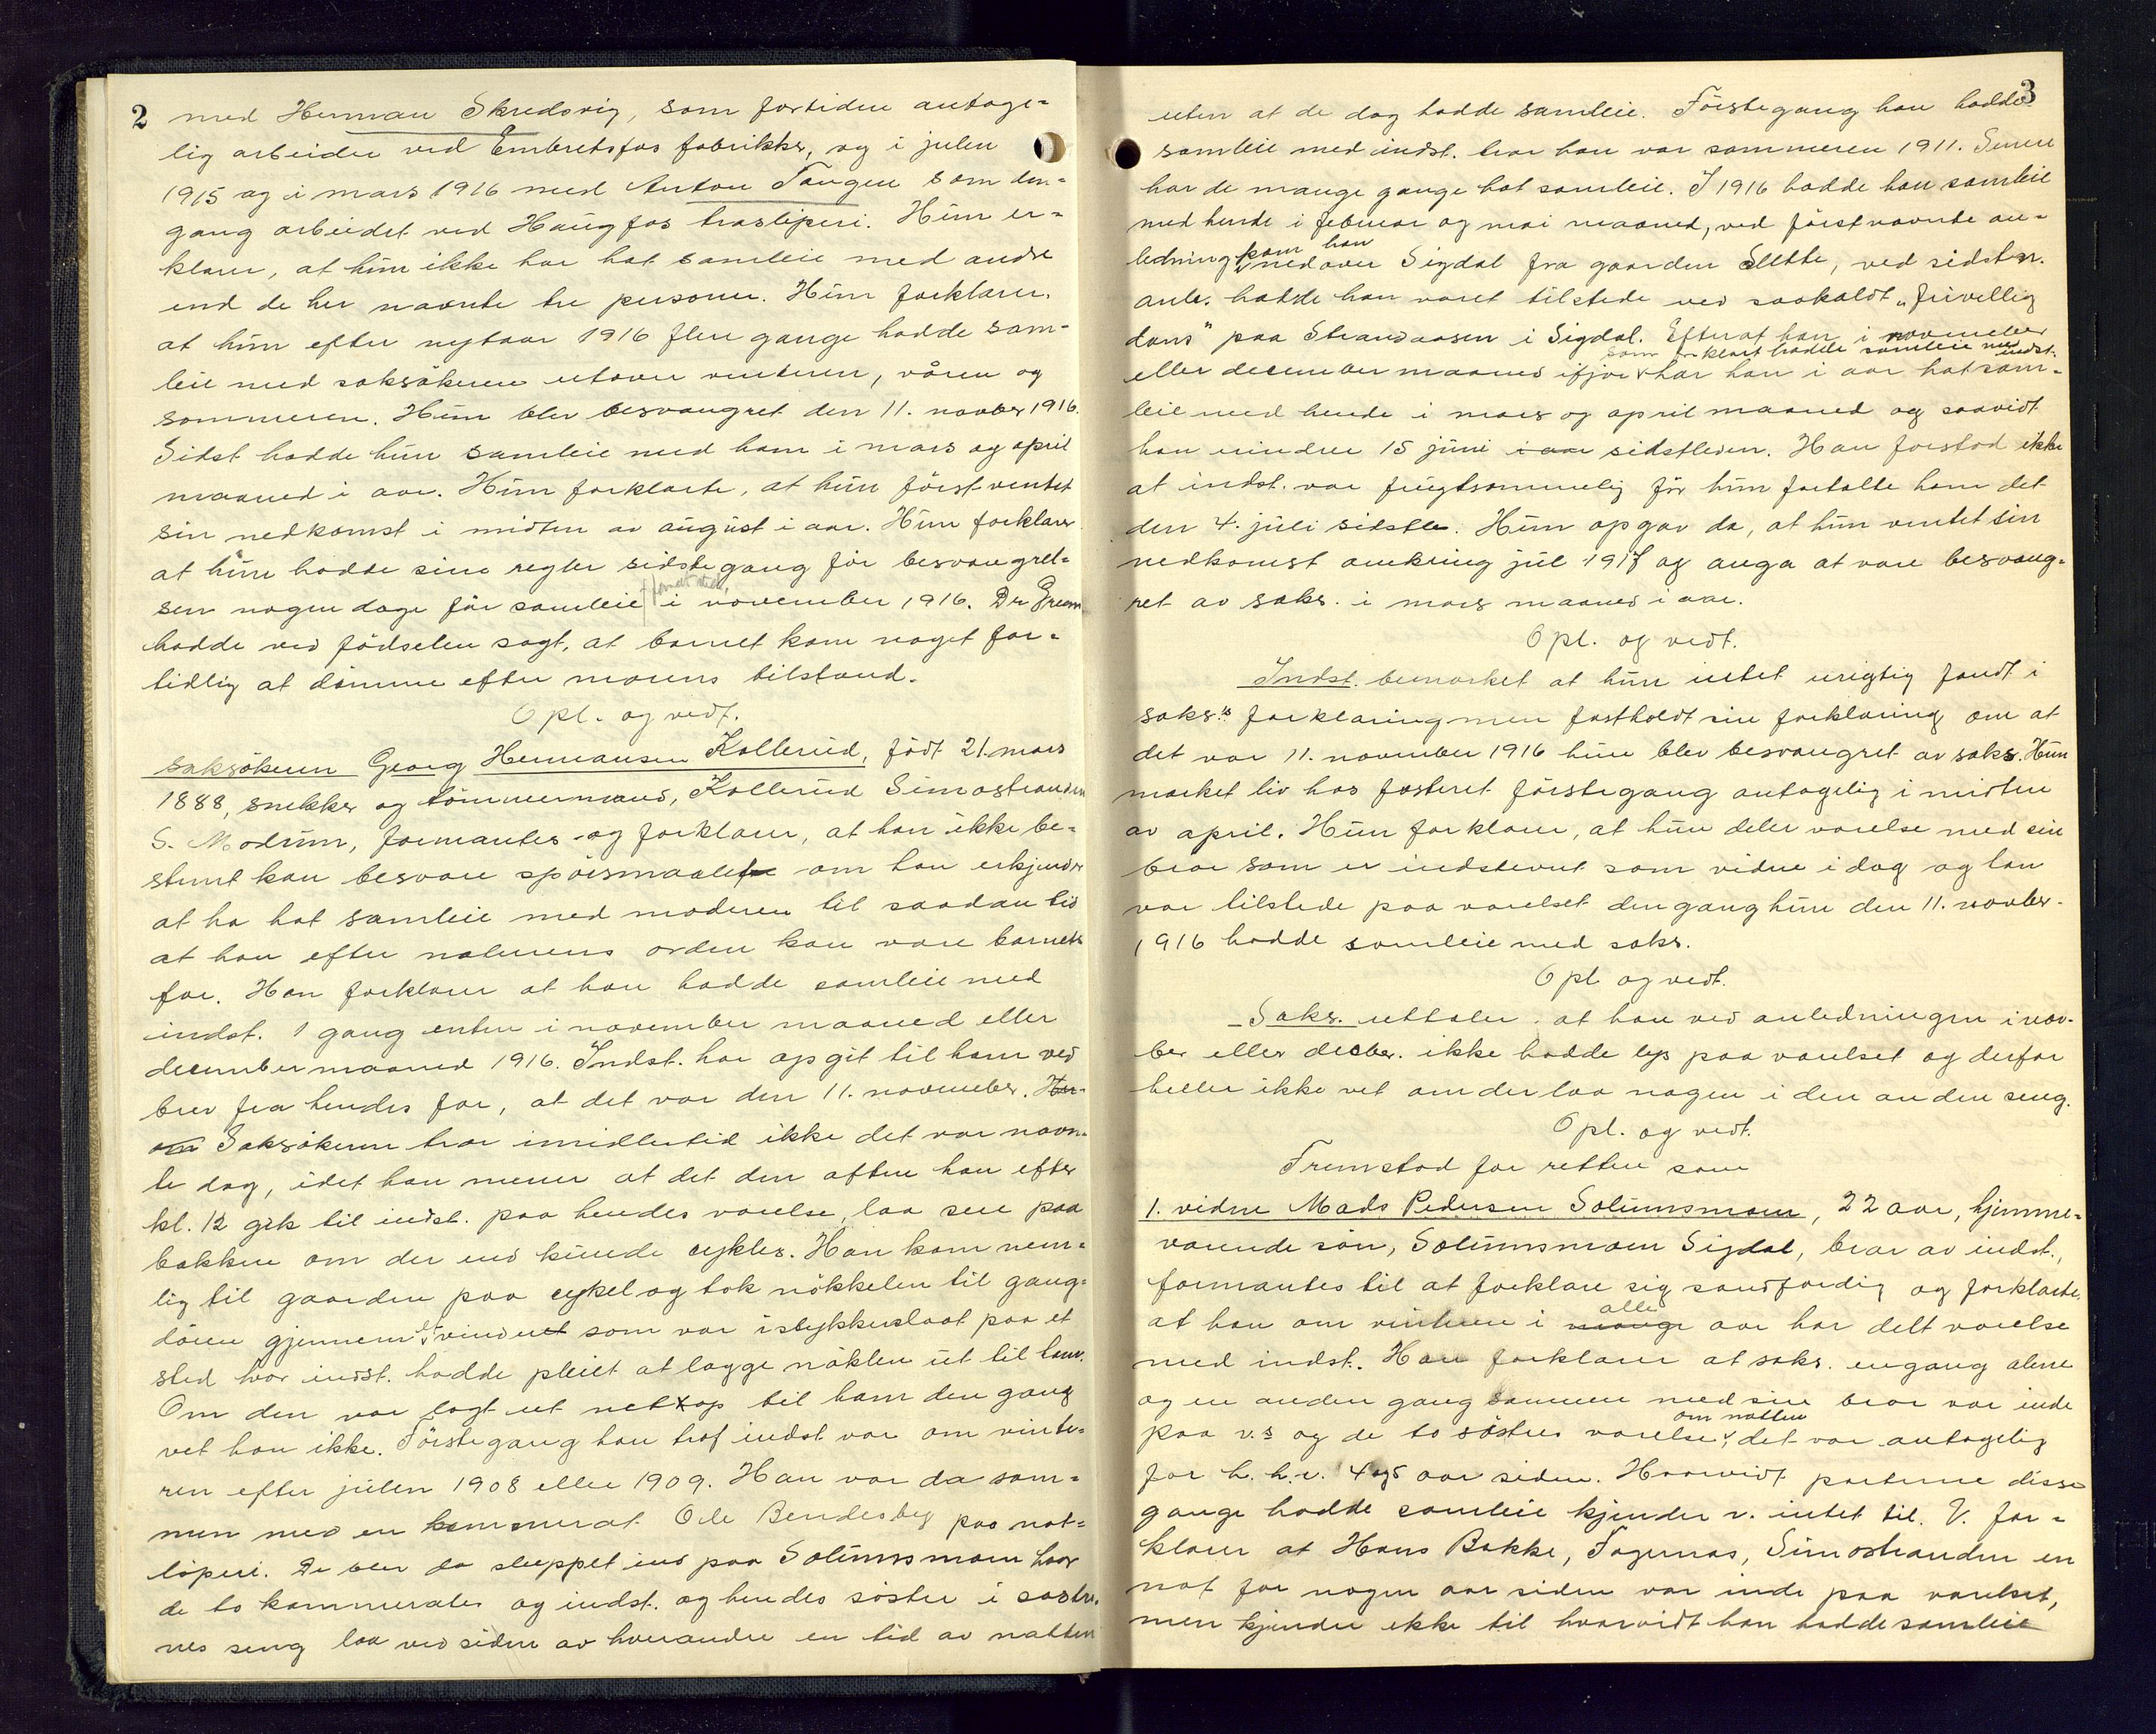 2
med Herman Skredsvig, som fortiden antage-
lig arbeider ved Embretsfos fabrikker, og i julen
1915 og i mars 1916 med Anton Tangen som den-
gang arbeidet ved Haugfos træsliperi. Hun er-
klærer, at hun ikke har hat samleie med andre
end de her nævnte tre personer. Hun forklarer,
at hun efter nytaar 1916 flere gange hadde sam-
leie med saksökeren utover vinteren, våren og
sommeren. Hun blev besvangret den 11. novber 1916.
Sidst hadde hun samleie med ham i mars og april
maaned i aar. Hun forklarte, at hun först ventet
sin nedkomst i midten av august i aar. Hun forklarer
at hun hadde sine regler sidste gang för besvangrel-
sen nogen dage för samleie i november 1916. Dr Gram
hadde ved födselen sagt, at barnet kom noget for-
tidlig at dömme efter morens tilstand.
Opl. og vedt.
Saksökeren Georg Hermansen Kollerud, födt 21. mars
1888, snekker og tömmermand, Kollerud Simostranden
S. Modum, formantes og forklarer, at han ikke be-
stemt kan besvare spörsmaalet om han erkjender
at ha hat samleie med moderen til saadan tid
at han efter naturens orden kan være barnets
far. Han forklarer at han hadde samleie med
indst. 1 gang enten i november maaned eller
december maaned 1916. Indst. har opgit til ham ved
brev fra hendes far, at det var den 11. november. Her-
om Saksökeren tror imidlertid ikke det var nævn-
te dag, idet han mener at det den aften han efter
kl. 12 gik til indst. paa hendes værelse, laa sne paa
bakken om der end kunde cykles. Han kom nem-
lig til gaarden paa cykel og tok nökkelen til gang-
dören gjennem et vindu som var istykkerslaat paa et
sted hvor indst. hadde pleiet at lægge nöklen ut til ham.
Om den var lagt ut netop til ham den gang
vet han ikke. Förste gang han traf indst. var om vinte-
ren efter julen 1908 eller 1909. Han var da sam-
men med en kammerat Ole Bendesby paa nat-
löperi. De blev da sluppet ind paa Solumsmoen hvor
de to kammerater og indst. og hendes söster i söstre-
nes seng laa ved siden av hverandre en tid av natten
3
uten at de dog hadde samleie. Förstegang han hadde
samleie med indst. tror han var sommeren 1911. Senere
har de mange gange hat samleie. I 1916 hadde han samleie
med hende i februar og mai maaned, ved förstnævnte an-
ledning kom han nedover Sigdal fra gaarden Slette, ved sidstn.
anl. hadde han været tilstede ved saakaldt „frivillig
dans" paa Strandaasen i Sigdal. Efterat han i november
som forklart hadde samleie med indst.
eller december maaned ifjor har han i aar hat sam-
leie med hende i mars og april maaned og saavidt
han erindrer 15 juni i aar sidstleden. Han forstod ikke
at indst. var frugtsommelig för hun fortalte ham det
den 4. juli sidstl. Hun opgav da, at hun ventet sin
nedkomst omkring jul 1917 og angav at være besvang-
ret av saks. i mars maaned i aar.
Opl. og vedt.
Indst. bemerket at hun intet urigtig fandt i
saks.s forklaring men fastholdt sin forklaring om at
det var 11. november 1916 hun blev besvangret av saks. Hun
merket liv hos fosteret förstegang antagelig i midten
av april. Hun forklarer, at hun deler værelse med sin
bror som er indstevnt som vidne i dag og han
var tilstede paa værelset den gang hun den 11. novber.
1916 hadde samleie med saks.
Opl og vedt.
Saks. uttaler at han ved anledningen i nov-
ber eller decber. ikke hadde lys paa værelset og derfor
heller ikke vet om der laa nogen i den anden seng.
Opl. og vedt.
Fremstod for retten som
1. vidne Mads Pedersen Solumsmoen, 22 aar, hjemme-
værende sön, Solumsmoen Sigdal, bror av indst.,
formantes til at forklare sig sandfærdig og forklarte,
at han om vinteren i mange alle aar har delt værelse
med indst. Han forklarer at saks. engang alene
og en anden gang sammen med sin bror var inde
paa v.s og de to söstres værelse om natten, det var antagelig
for h. h. v. 4 og 5 aar siden. Hvorvidt parterne disse
gange hadde samleie kjender v. intet til. V. for-
klarer at Hans Bakke, Fagernæs, Simostranden en
nat for nogen aar siden var inde paa værelset,
men kjender ikke til hvorvidt han hadde samleie